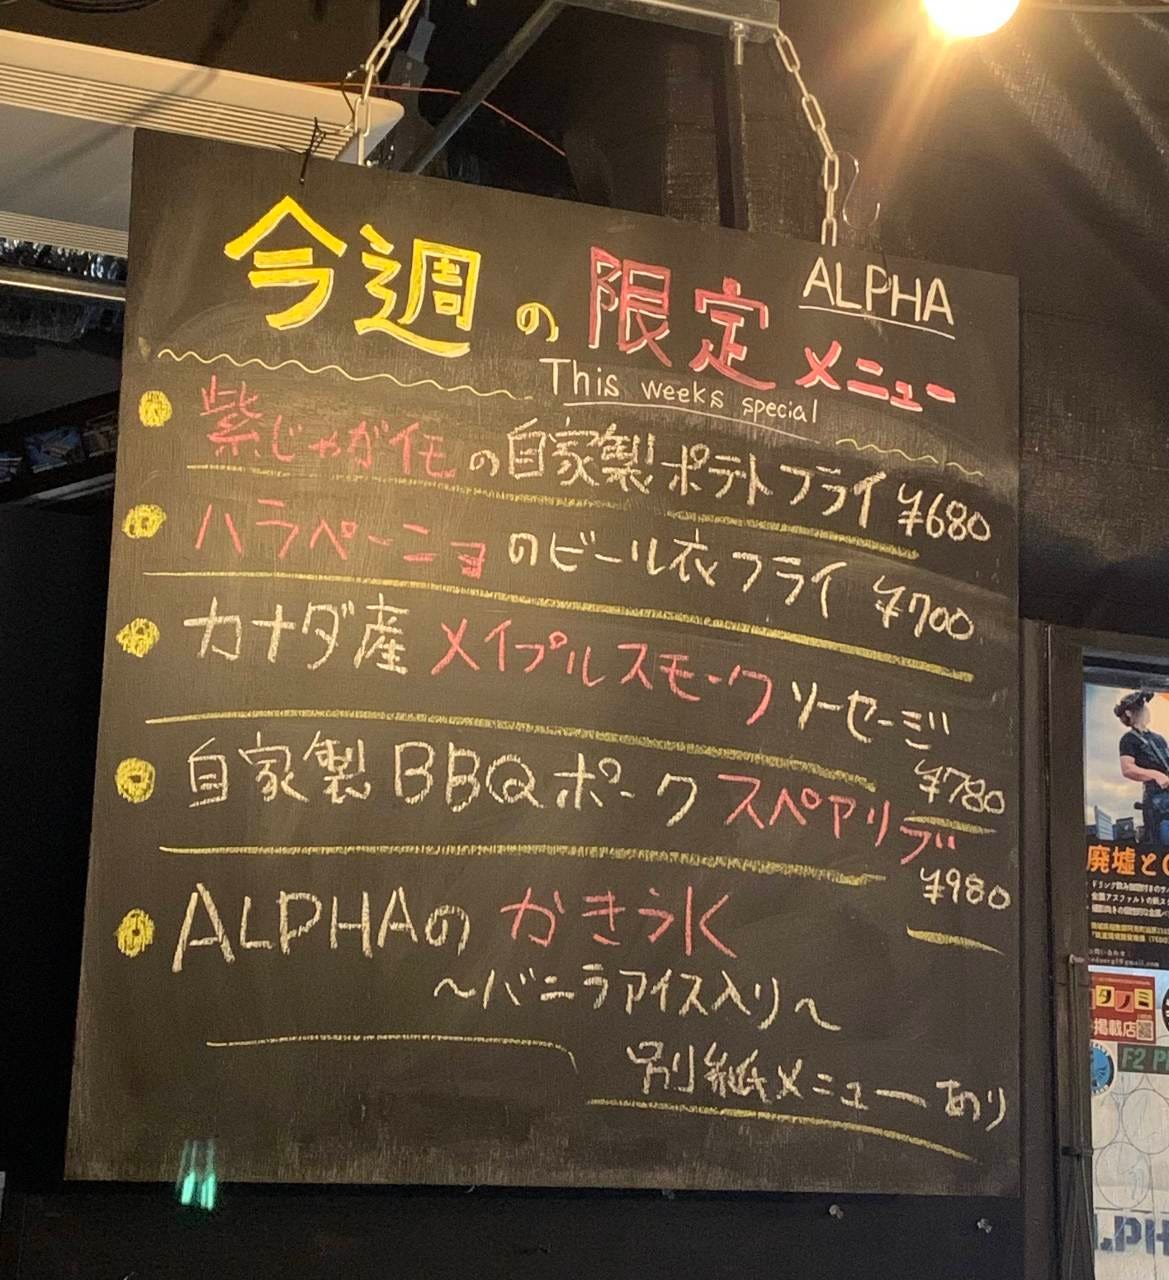 ALPHA
今週の限定メニュー
This weeks special
紫じゃがイモの自家製ポテトフライ ¥680
ハラペーニョのビール衣フライ ¥700
カナダ産メイプルスモークソーセージ
¥780
自家製BBQポークスペアリブ
¥980
ALPHAのかき氷
〜バニラアイス入り〜
別紙メニューあり
廃墟と
タノミ
掲載店
F2 P
LPH